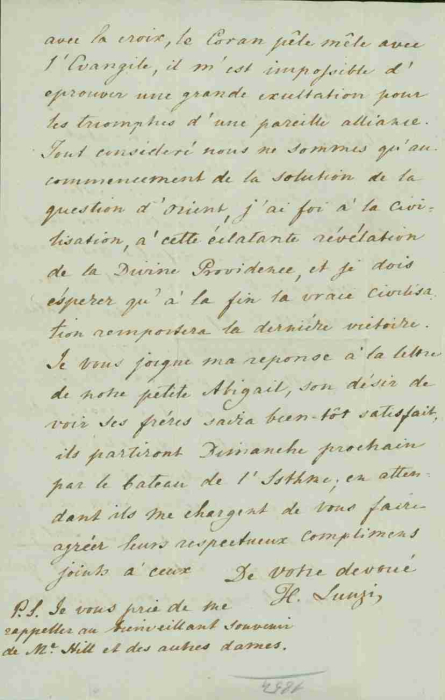 avec la croix, le Coran pêle mêle avec
l'Evangile, il m'est impossible d'
eprouver une grande exultation pour
les triomphes d'une pareille alliance.
Tout consideré nous ne sommes qu'au
commencement de la solution de la
question d'Orient, j'ai foi à la Civi-
lisation, à cette éclatante révélation
de la Divine Providence, et je dois
éspérer qu'à la fin la vraie Civilisa-
tion remportera la derniére victoire.
Je vous joigne ma reponse à la lettre
de notre petite Abigail, son désir de
voir ses fréres saira bien-tôt satisfait,
ils partiront Dimanche prochain
par le bateau de l'Isthme; en atten-
dant ils me chargent de vous faire
agréer leurs respectueux complimens
joints à ceux De votre devoué
H. Lunzi,
P.S. Je vous prie de me
rappeller au bienveillant souvenir
de Mr. Hill et des autres dames.